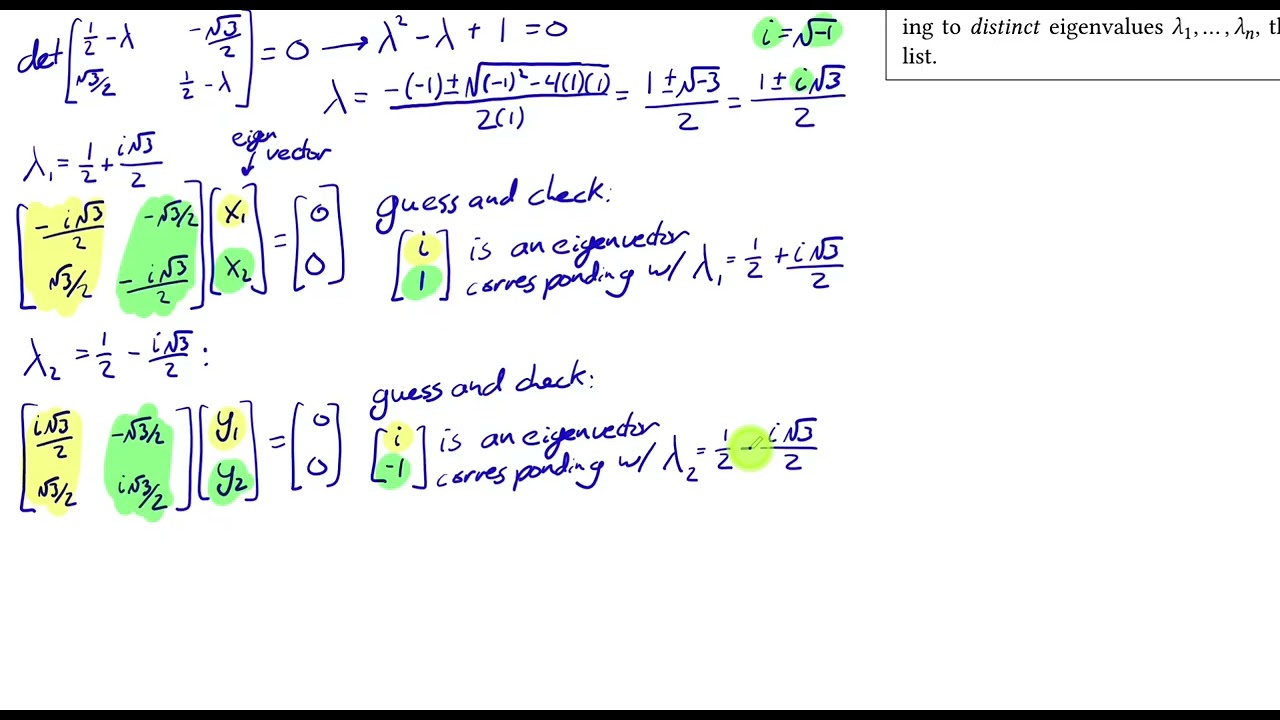 det [1/2 - λ  -√3/2; √3/2  1/2 - λ] = 0 → λ² - λ + 1 = 0
i = √-1
λ = (-(-1) ± √((-1)² - 4(1)(1))) / 2(1) = (1 ± √-3) / 2 = (1 ± i√3) / 2
ing to distinct eigenvalues λ₁, …, λₙ, th
list.
λ₁ = 1/2 + i√3/2
eigen
vector
[-i√3/2  -√3/2; √3/2  -i√3/2] [x₁; x₂] = [0; 0]
guess and check:
[i; 1] is an eigenvector
corresponding w/ λ₁ = 1/2 + i√3/2
λ₂ = 1/2 - i√3/2 :
[i√3/2  -√3/2; √3/2  i√3/2] [y₁; y₂] = [0; 0]
guess and check:
[i; -1] is an eigenvector
corresponding w/ λ₂ = 1/2 - i√3/2